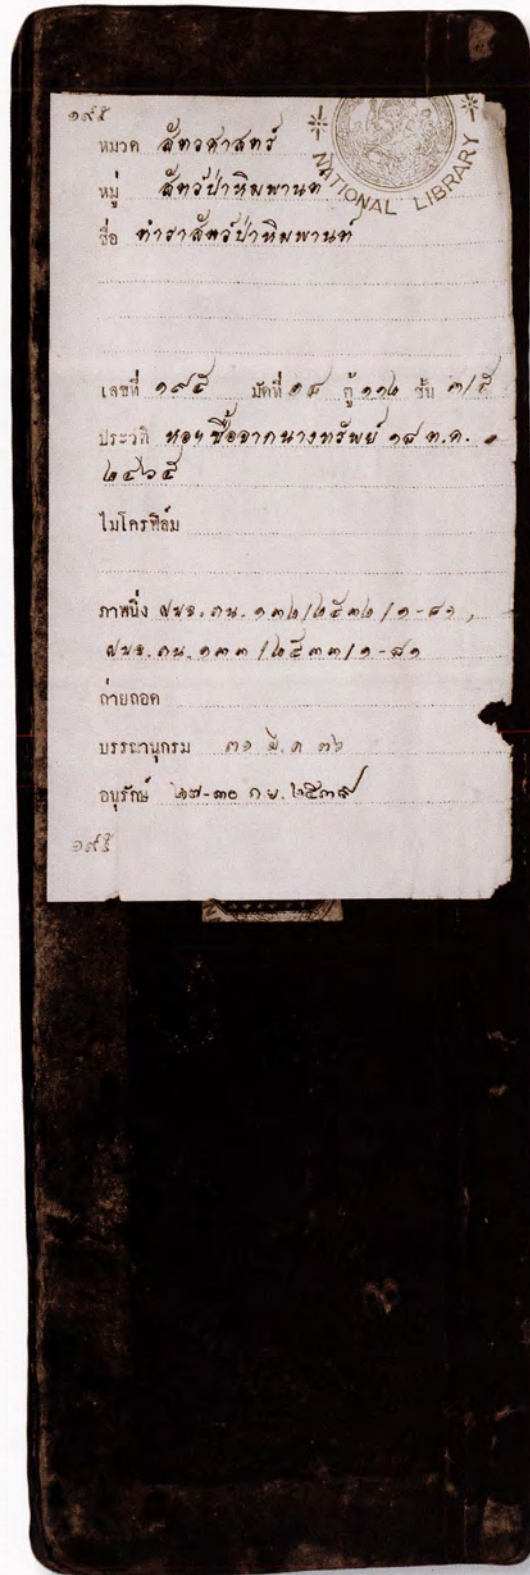 ๑๙๕
หมวด สัตวศาสตร์
NATIONAL LIBRARY
หมู่ สัตว์ป่าหิมพานต์
ชื่อ ตำราสัตว์ป่าหิมพานต์
เลขที่ ๑๙๕ มัดที่ ๑๘ ตู้ ๑๑๖ ชั้น ๓/๕
ประวัติ หอฯ ซื้อจากนางทรัพย์ ๑๘ ต.ค.
๒๔๖๕
ไมโครฟิล์ม
ภาพนิ่ง ฝนจ.ถน. ๑๓๒/๒๕๓๒/๑-๘๑,
ฝนจ.ถน. ๑๓๓/๒๕๓๓/๑-๘๑
ถ่ายถอด
บรรณานุกรม ๓๑ มี.ค ๓๖
อนุรักษ์ ๒๗-๓๐ ก.ย. ๒๕๓๙
๑๙๕